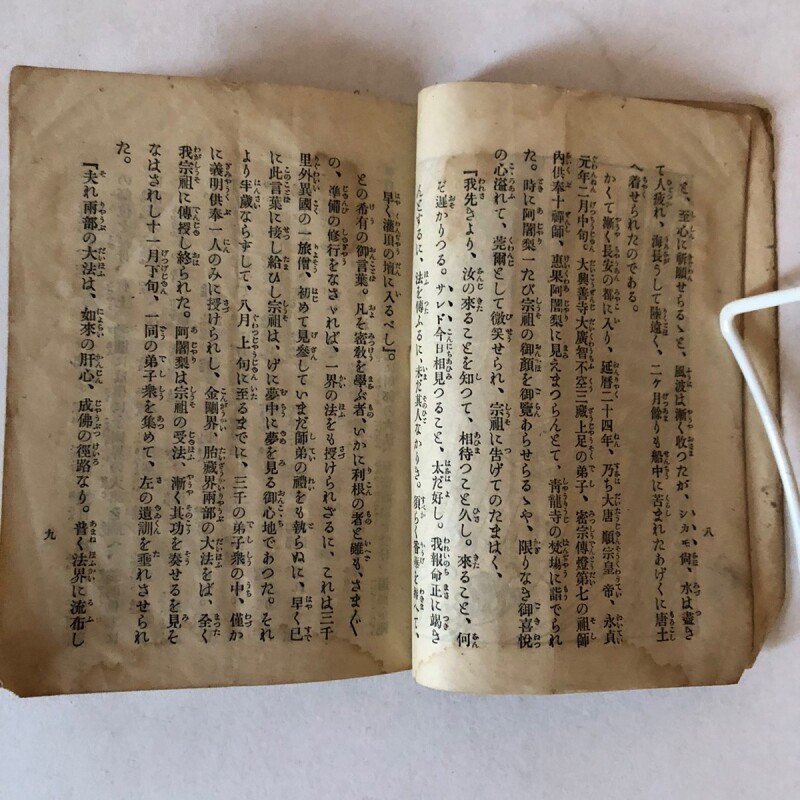 と、至心に祈願せらるゝと、風波は漸く收つたが、シカモ尚、水は盡き
て人疲れ、海長うして陸遠く、二ヶ月餘りも船中に苦まれたあげくに唐土
へ着せられたのである。
かくて漸く長安の都に入り、延曆二十四年、乃ち大唐順宗皇帝、永貞
元年二月中旬。大興善寺大廣智不空三藏上足の弟子、密宗傳燈第七の祖師
内供奉十禪師、惠果阿闍梨に見えまつらんとて、靑龍寺の梵場に詣でられ
た。時に阿闍梨一たび宗祖の御顔を御覽あらせらるゝや、限りなき御喜悅
の心溢れて、莞爾として微笑せられ、宗祖に告げてのたまはく、
『我先きより、汝の來ることを知つて、相待つこと久し。來ること、何
ぞ遲かりつる。サレド今日相見つること、太だ好し。我報命正に竭き
んとするに、法を傳ふるに、未だ其人なかりき。須らく香華を
八
早く灌頂の壇に入るべし』。
との希有の御言葉。凡を密敎を學ぶ者、いかに利根の者と雖も、さまぐ
の、準備の修行をなさゞれば、一界の法をも授けられざるに、これは三千
里外異國の一旅僧、初めて見參していまだ師弟の禮をも執らぬに、早く已
に此言葉に接し給ひし宗祖は、げに夢中に夢を見る御心地であつた。それ
より半歲ならずして、八月上旬に至るまでに、三千の弟子衆の中、僅か
に義明供奉一人のみに授けられし、金剛界、胎藏界兩部の大法をば、全く
我宗祖に傳授し終られた。阿闍梨は宗祖の受法、漸く其功を奏せるを見そ
なはされし十一月下旬、一同の弟子衆を集めて、左の遺訓を垂れさせられ
た。
『夫れ兩部の大法は、如來の肝心、成佛の徑路なり。普く法界に流布し
九